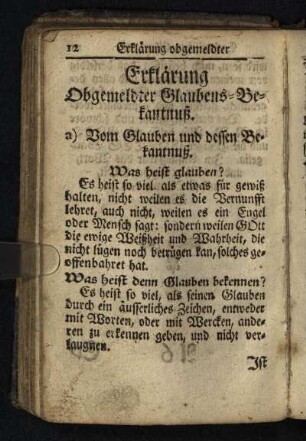 12 Erklärung obgemeldter
Erklärung
Obgemeldter Glaubens-Be-
kantnuß.
a) Vom Glauben und dessen Be-
kantnuß.
Was heist glauben?
Es heist so viel als etwas für gewiß
halten, nicht weilen es die Vernunfft
lehret, auch nicht, weilen es ein Engel
oder Mensch sagt: sondern weilen GOtt
die ewige Weißheit und Wahrheit, die
nicht lügen noch betrügen kan, solches ge-
offenbahret hat.
Was heist denn Glauben bekennen?
Es heist so viel, als seinen Glauben
durch ein äusserliches Zeichen, entweder
mit Worten, oder mit Wercken, ande-
ren zu erkennen geben, und nicht ver-
laugnen.
Ist